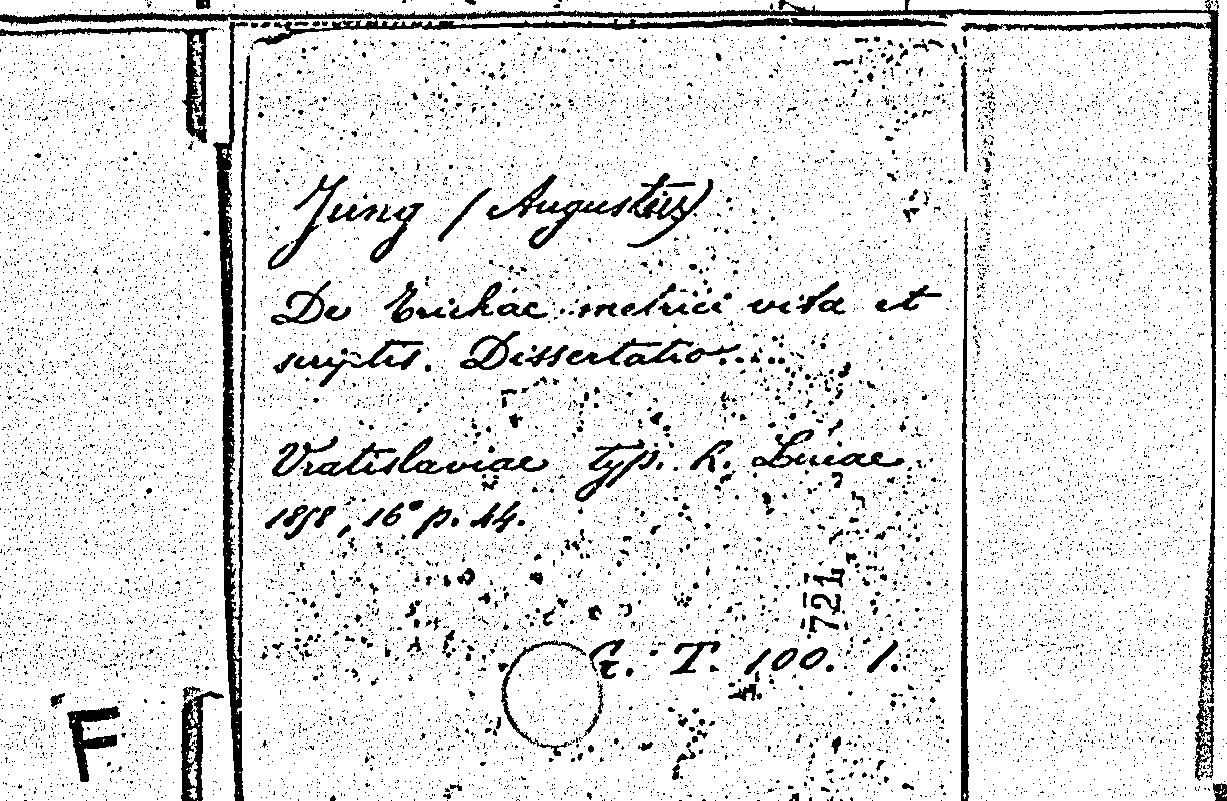 Jung (Augustus)
De Trichae metrici vita et
scriptis. Dissertatio.....
Vratislaviae typ. h. Liniae
1858, 16° p. 44.
721
G. T. 100. 1.
F